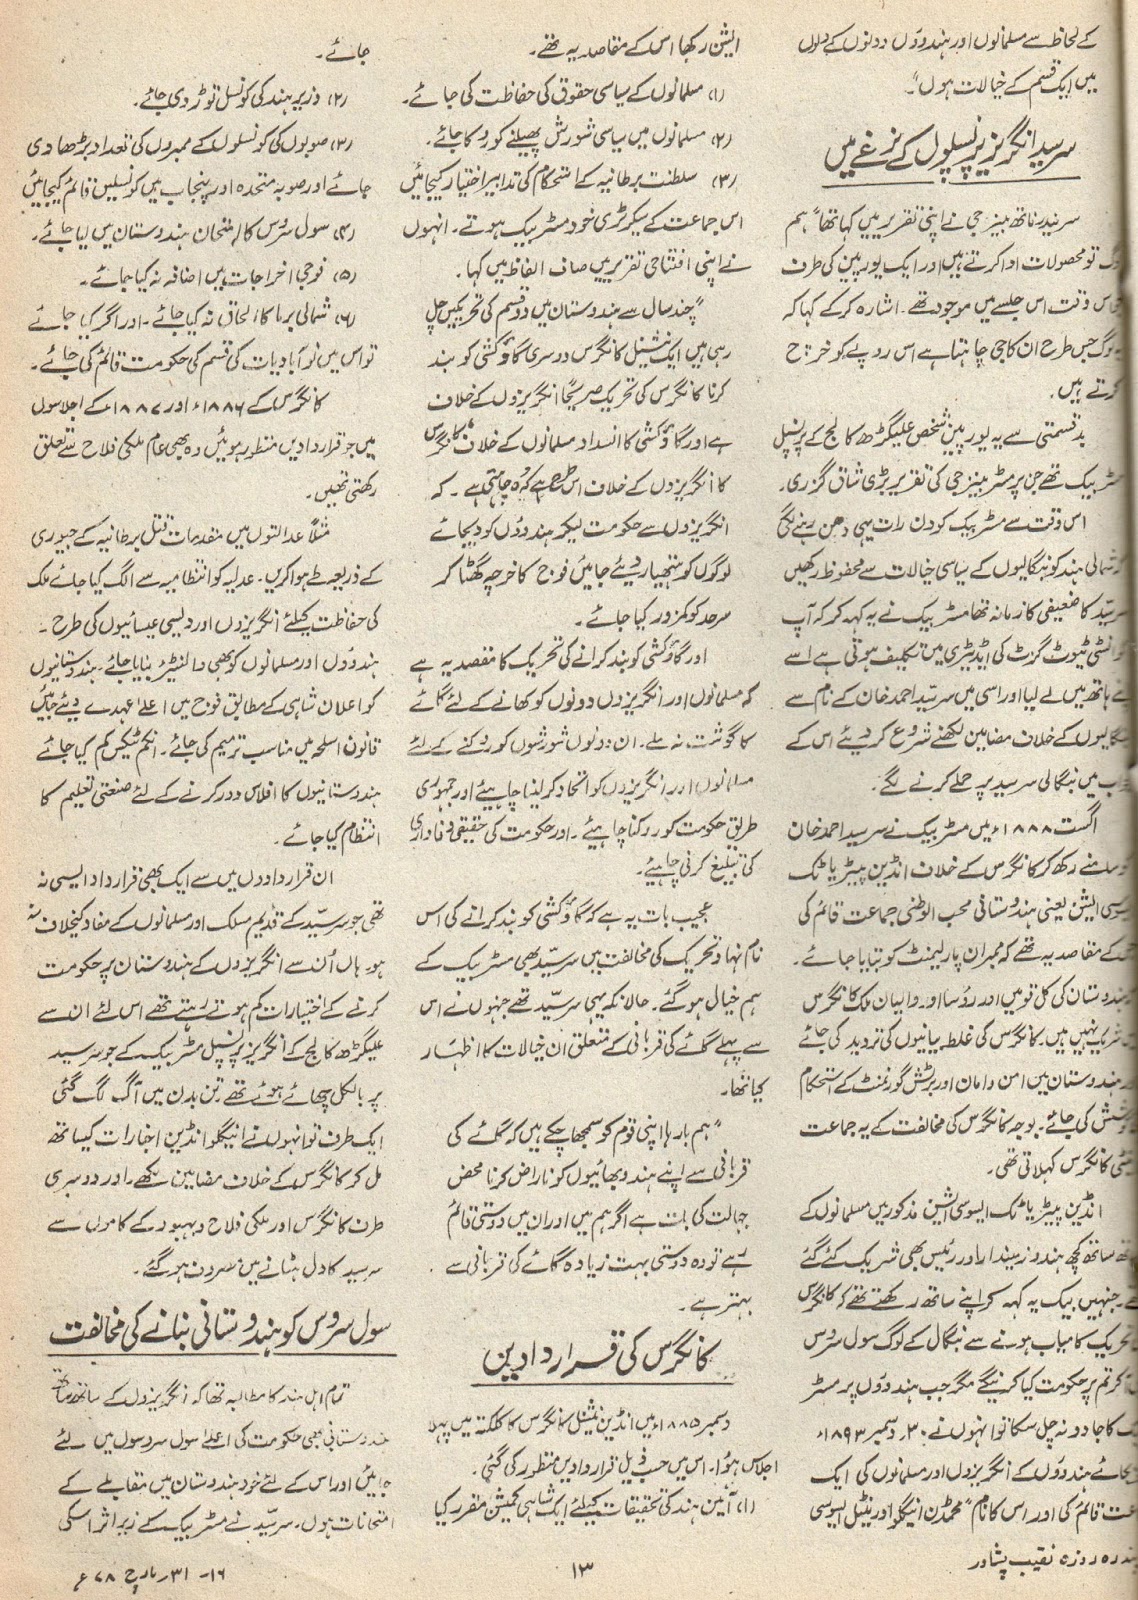 کے لحاظ سے مسلمانوں اور ہندوؤں دونوں کے دلوں
میں ایک قسم کے خیالات ہوں"۔
سرسید انگریز پرنسپلوں کے نرغے میں
سر سندر ناتھ بینرجی نے اپنی تقریر میں کہا تھا" ہم
لوگ تو محصولات ادا کرتے ہیں اور ایک یورپین کی طرف
اس وقت اس جلسے میں موجود تھے۔ اشارہ کر کے کہا کہ
لوگ جس طرح ان کا جی چاہتا ہے اس روپے کو خرچ
کرتے ہیں۔
بدقسمتی سے یہ یورپین شخص علیگڑھ کالج کے پرنسپل
مسٹر بیک تھے جن پر مسٹر بینرجی کی تقریر بڑی شاق گزری۔
اس وقت سے مسٹر بیک کو دن رات یہی دھن رہنے لگی
کہ شمالی ہند کو بنگالیوں کے سیاسی خیالات سے محفوظ رکھیں
سرسید کا ضعیفی کا زمانہ تھا مسٹر بیک نے یہ کہہ کر کہ آپ
کو انسٹی ٹیوٹ گزٹ کی ایڈیٹری میں تکلیف ہوتی ہے اسے
اپنے ہاتھ میں لے لیا اور اسی میں سرسید احمد خان کے نام سے
بنگالیوں کے خلاف مضامین لکھنے شروع کر دیئے اس کے
جواب میں بنگالی سرسید پر حملے کرنے لگے۔
اگست ۱۸۸۸ء میں مسٹر بیک نے سرسید احمد خان
کو سامنے رکھ کر کانگرس کے خلاف انڈین پیٹریاٹک
ایسوسی ایشن یعنی ہندوستانی محب الوطنی جماعت قائم کی
جس کے مقاصد یہ تھے کہ ممبران پارلیمنٹ کو بتایا جائے۔
کہ ہندوستان کی کل قومیں اور رؤسا اور والیان ملک کانگرس
میں شریک نہیں ہیں۔ کانگرس کی غلط بیانیوں کی تردید کی جائے
اور ہندوستان میں امن و امان اور برٹش گورنمنٹ کے استحکام
کی کوشش کی جائے۔ بوجہ کانگرس کی مخالفت کے یہ جماعت
اینٹی کانگرس کہلاتی تھی۔
انڈین پیٹریاٹک ایسوسی ایشن مذکور میں مسلمانوں کے
ساتھ ساتھ کچھ ہندو زمیندار اور رئیس بھی شریک کئے گئے
تھے۔ جنہیں بیک یہ کہہ کر اپنے ساتھ رکھتے تھے کہ کانگرس
تحریک کامیاب ہونے سے بنگال کے لوگ سول سروس
آ کر تم پر حکومت کیا کرینگے مگر جب ہندوؤں پر مسٹر
بیک کا جادو نہ چل سکا تو انہوں نے ۳۰۔ دسمبر ۱۸۹۳ء
بجائے ہندوؤں کے انگریزوں اور مسلمانوں کی ایک
جماعت قائم کی اور اس کا نام" محمڈن اینگلو اورینٹل ایسوسی
ایشن رکھا اس کے مقاصد یہ تھے۔
(۱) مسلمانوں کے سیاسی حقوق کی حفاظت کی جائے۔
(۲) مسلمانوں میں سیاسی شورش پھیلنے کو روکا جائے۔
(۳) سلطنت برطانیہ کے استحکام کی تدابیر اختیار کیجائیں
اس جماعت کے سیکرٹری خود مسٹر بیک ہوتے۔ انہوں
نے اپنی افتتاحی تقریر میں صاف الفاظ میں کہا۔
"چند سال سے ہندوستان میں دو قسم کی تحریکیں چل
رہی ہیں ایک نیشنل کانگرس دوسری گاؤکشی کو بند
کرنا کانگرس کی تحریک صریحاً انگریزوں کے خلاف
ہے اور گاؤکشی کا انسداد مسلمانوں کے خلاف، کانگرس
کا انگریزوں کے خلاف اس طرح ہے کہ وہ چاہتی ہے۔ کہ
انگریزوں سے حکومت لیکر ہندوؤں کو دیجائے
لوگوں کو ہتھیار دیئے جائیں فوج کا خرچہ گھٹا کر
سرحد کو کمزور کیا جائے۔
اور گاؤکشی کو بند کرانے کی تحریک کا مقصد یہ ہے
کہ مسلمانوں اور انگریزوں دونوں کو کھانے کے لئے گائے
کا گوشت نہ ملے۔ ان دونوں شورشوں کو روکنے کے لئے
مسلمانوں اور انگریزوں کو اتحاد کر لینا چاہیئے اور جمہوری
طریق حکومت کو روکنا چاہیئے۔ اور حکومت کی حقیقی وفاداری
کی تبلیغ کرنی چاہیئے۔
عجیب بات یہ ہے کہ گاؤکشی کو بند کرانے کی اس
نام نہاد تحریک کی مخالفت میں سرسید بھی مسٹر بیک کے
ہم خیال ہو گئے۔ حالانکہ یہی سرسید تھے جنہوں نے اس
سے پہلے گائے کی قربانی کے متعلق ان خیالات کا اظہار
کیا تھا۔
"ہم بارہا اپنی قوم کو سمجھا چکے ہیں کہ گائے کی
قربانی سے اپنے ہندو بھائیوں کو ناراض کرنا محض
جہالت کی بات ہے اگر ہم میں اور ان میں دوستی قائم
رہے تو وہ دوستی بہت زیادہ گائے کی قربانی سے
بہتر ہے۔
کانگرس کی قراردادیں
دسمبر ۱۸۸۵ء میں انڈین نیشنل کانگرس کا کلکتہ میں پہلا
اجلاس ہوا۔ اس میں حسب ذیل قراردادیں منظور کی گئی۔
(۱) آئین ہند کی تحقیقات کیلئے ایک شاہی کمیشن مقرر کیا
جائے۔
(۲) وزیر ہند کی کونسل توڑ دی جائے۔
(۳) صوبوں کی کونسلوں کے ممبروں کی تعداد بڑھا دی
جائے اور صوبہ متحدہ اور پنجاب میں کونسلیں قائم کیجائیں
(۴) سول سروس کا امتحان ہندوستان میں لیا جائے۔
(۵) فوجی اخراجات میں اضافہ نہ کیا جائے۔
(۶) شمالی برما کا الحاق نہ کیا جائے۔ اور اگر کیا جائے
تو اس میں نوآبادیات کی قسم کی حکومت قائم کی جائے۔
کانگرس کے ۱۸۸۶ء اور ۱۸۸۷ء کے اجلاسوں
میں جو قراردادیں منظور ہوئیں وہ بھی عام ملکی فلاح سے تعلق
رکھتی تھیں۔
مثلاً عدالتوں میں مقدمات قتل برطانیہ کے جیوری
کے ذریعہ طے ہوا کریں۔ عدلیہ کو انتظامیہ سے الگ کیا جائے ملک
کی حفاظت کیلئے انگریزوں اور دیسی عیسائیوں کی طرح۔
ہندوؤں اور مسلمانوں کو بھی والنٹیر بنایا جائے۔ ہندوستانیوں
کو اعلان شاہی کے مطابق فوج میں اعلےٰ عہدے دیئے جائیں
قانون اسلحہ میں مناسب ترمیم کی جائے۔ انکم ٹیکس کم کیا جائے
ہندوستانیوں کا افلاس دور کرنے کے لئے صنعتی تعلیم کا
انتظام کیا جائے۔
ان قراردادوں میں سے ایک بھی قرارداد ایسی نہ
تھی جو سرسید کے قدیم مسلک اور مسلمانوں کے مفاد کیخلاف نہ
ہو۔ ہاں اُن سے انگریزوں کے ہندوستان پر حکومت
کرنے کے اختیارات کم ہوتے رہتے تھے اس لئے ان سے
علیگڑھ کالج کے انگریز پرنسپل مسٹر بیک کے جو سرسید
پر بالکل چھائے ہوئے تھے تن بدن میں آگ لگ گئی
ایک طرف تو انہوں نے اینگلو انڈین اخبارات کیساتھ
مل کر کانگرس کے خلاف مضامین لکھے۔ اور دوسری
طرف کانگرس اور ملکی فلاح و بہبود کے کاموں سے
سرسید کا دل ہٹانے میں مصروف ہو گئے۔
سول سروس کو ہندوستانی بنانے کی مخالفت
تمام اہل ہند کا مطالبہ تھا کہ انگریزوں کے ساتھ ساتھ
ہندوستانی بھی حکومت کی اعلےٰ سول سروسوں میں لئے
جائیں اور اس کے لئے خود ہندوستان میں مقابلے کے
امتحانات ہوں۔ سرسید نے مسٹر بیک کے زیر اثر اسکی
پندرہ روزہ نقیب پشاور
۱۳
۱۶۔ ۳۱ مارچ ۷۸ء